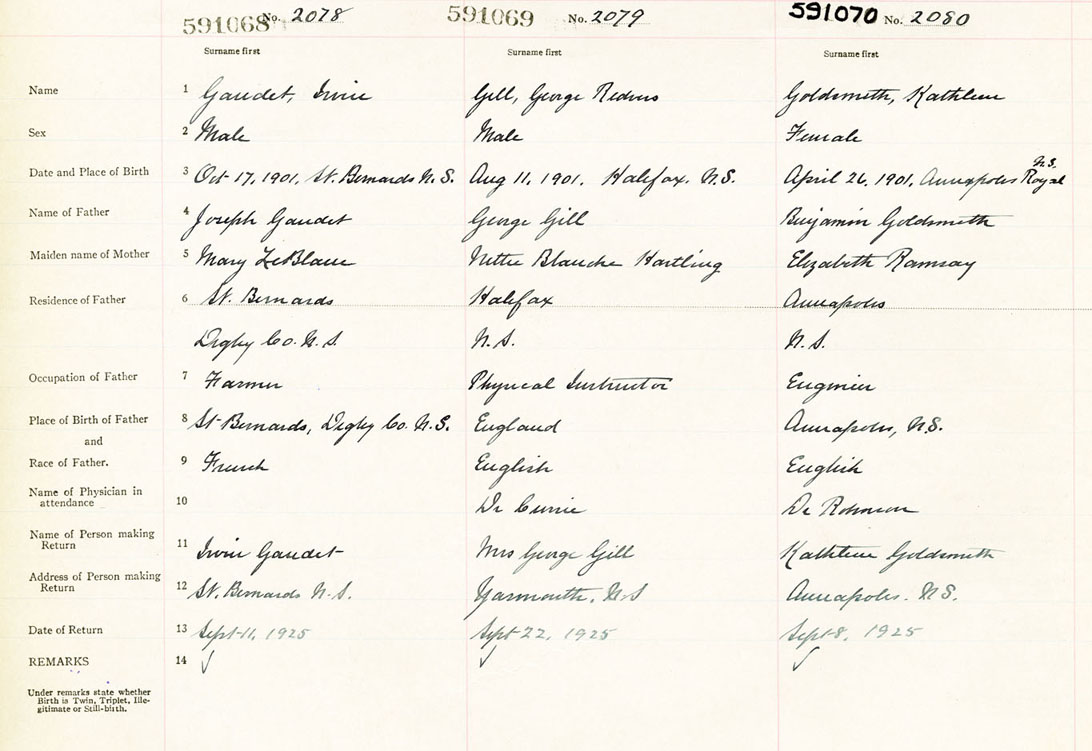 591068 No. 2078 591069 No. 2079 591070 No. 2080
Surname first Surname first Surname first
Name 1 Gaudet, Irvin Gill, George Redvers Goldsmith, Kathleen
Sex 2 Male Male Female
N.S.
Date and Place of Birth 3 Oct 17, 1901, St. Bernards N.S. Aug 11, 1901. Halifax. N.S. April 26, 1901, Annapolis Royal
Name of Father 4 Joseph Gaudet George Gill Benjamin Goldsmith
Maiden name of Mother 5 Mary LeBlanc Nettie Blanche Hartling Elizabeth Ramsay
Residence of Father 6 St. Bernards Halifax Annapolis
Digby Co. N.S. N.S. N.S.
Occupation of Father 7 Farmer Physical Instructor Engineer
Place of Birth of Father 8 St Bernards, Digby Co. N.S. England Annapolis, N.S.
and
Race of Father. 9 French English English
Name of Physician in
attendance 10 Dr Currie Dr Robinson
Name of Person making
Return 11 Irvin Gaudet Mrs George Gill Kathleen Goldsmith
Address of Person making
Return 12 St. Bernards N.S. Yarmouth. N.S Annapolis. N.S.
Date of Return 13 Sept 11, 1925 Sept 22, 1925 Sept 8, 1925
REMARKS 14
Under remarks state whether
Birth is Twin, Triplet, Ille-
gitimate or Still-birth.